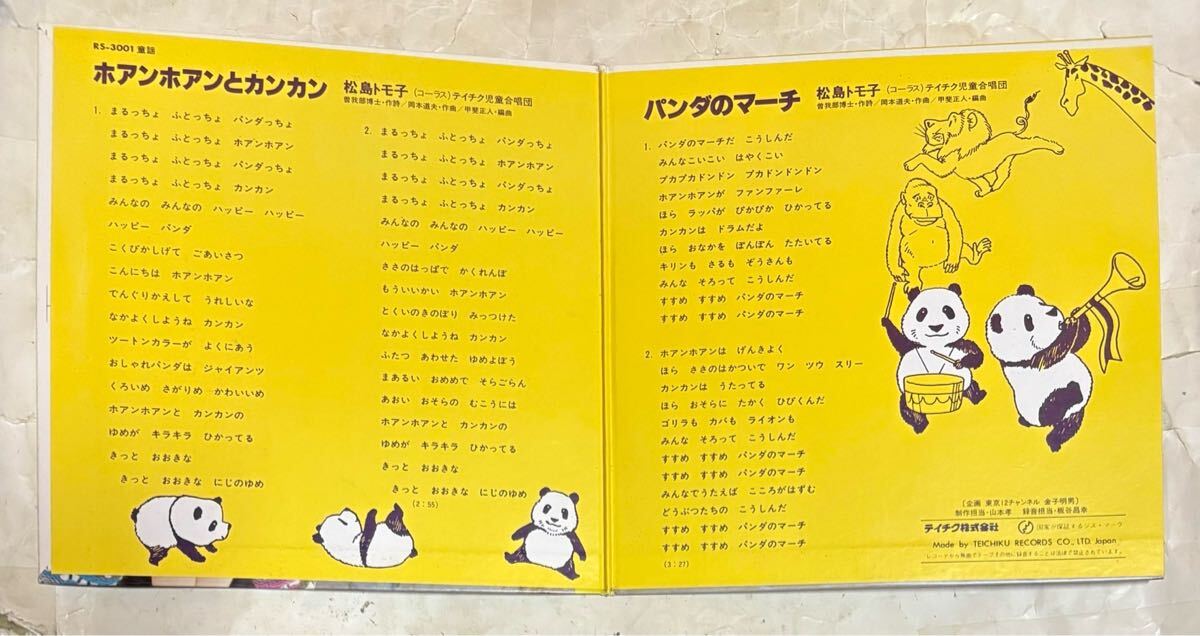 RS-3001 童謡
ホアンホアンとカンカン 松島トモ子 (コーラス)テイチク児童合唱団
曽我部博士・作詩/岡本道夫・作曲/甲斐正人・編曲
1. まるっちょ ふとっちょ パンダっちょ
まるっちょ ふとっちょ ホアンホアン
まるっちょ ふとっちょ パンダっちょ
まるっちょ ふとっちょ カンカン
みんなの みんなの ハッピー ハッピー
ハッピー パンダ
こくびかしげて ごあいさつ
こんにちは ホアンホアン
でんぐりかえして うれしいな
なかよくしようね カンカン
ツートンカラーが よくにあう
おしゃれパンダは ジャイアンツ
くろいめ さがりめ かわいいめ
ホアンホアンと カンカンの
ゆめが キラキラ ひかってる
きっと おおきな
きっと おおきな にじのゆめ
2. まるっちょ ふとっちょ パンダっちょ
まるっちょ ふとっちょ ホアンホアン
まるっちょ ふとっちょ パンダっちょ
まるっちょ ふとっちょ カンカン
みんなの みんなの ハッピー ハッピー
ハッピー パンダ
ささのはっぱで かくれんぼ
もういいかい ホアンホアン
とくいのきのぼり みっつけた
なかよくしようね カンカン
ふたつ あわせた ゆめよぼう
まあるい おめめで そらごらん
あおい おそらの むこうには
ホアンホアンと カンカンの
ゆめが キラキラ ひかってる
きっと おおきな
きっと おおきな にじのゆめ
(2:55)
パンダのマーチ 松島トモ子 (コーラス)テイチク児童合唱団
曽我部博士・作詩/岡本道夫・作曲/甲斐正人・編曲
1. パンダのマーチだ こうしんだ
みんなこいこい はやくこい
プカプカドンドン プカドンドンドン
ホアンホアンが ファンファーレ
ほら ラッパが ぴかぴか ひかってる
カンカンは ドラムだよ
ほら おなかを ぽんぽん たたいてる
キリンも さるも ぞうさんも
みんな そろって こうしんだ
すすめ すすめ パンダのマーチ
すすめ すすめ パンダのマーチ
2. ホアンホアンは げんきよく
ほら ささのはかついで ワン ツウ スリー
カンカンは うたってる
ほら おそらに たかく ひびくんだ
ゴリラも カバも ライオンも
みんな そろって こうしんだ
すすめ すすめ パンダのマーチ
すすめ すすめ パンダのマーチ
みんなでうたえば こころがはずむ
どうぶつたちの こうしんだ
すすめ すすめ パンダのマーチ
すすめ すすめ パンダのマーチ
(3:27)
〔企画 東京12チャンネル 金子明男〕
制作担当・山本孝 録音担当・板谷昌幸
テイチク株式会社 国家が保証するジス・マーク
Made by TEICHIKU RECORDS CO., LTD. Japan
レコードから無断でテープその他に録音することは法律で禁止されています。